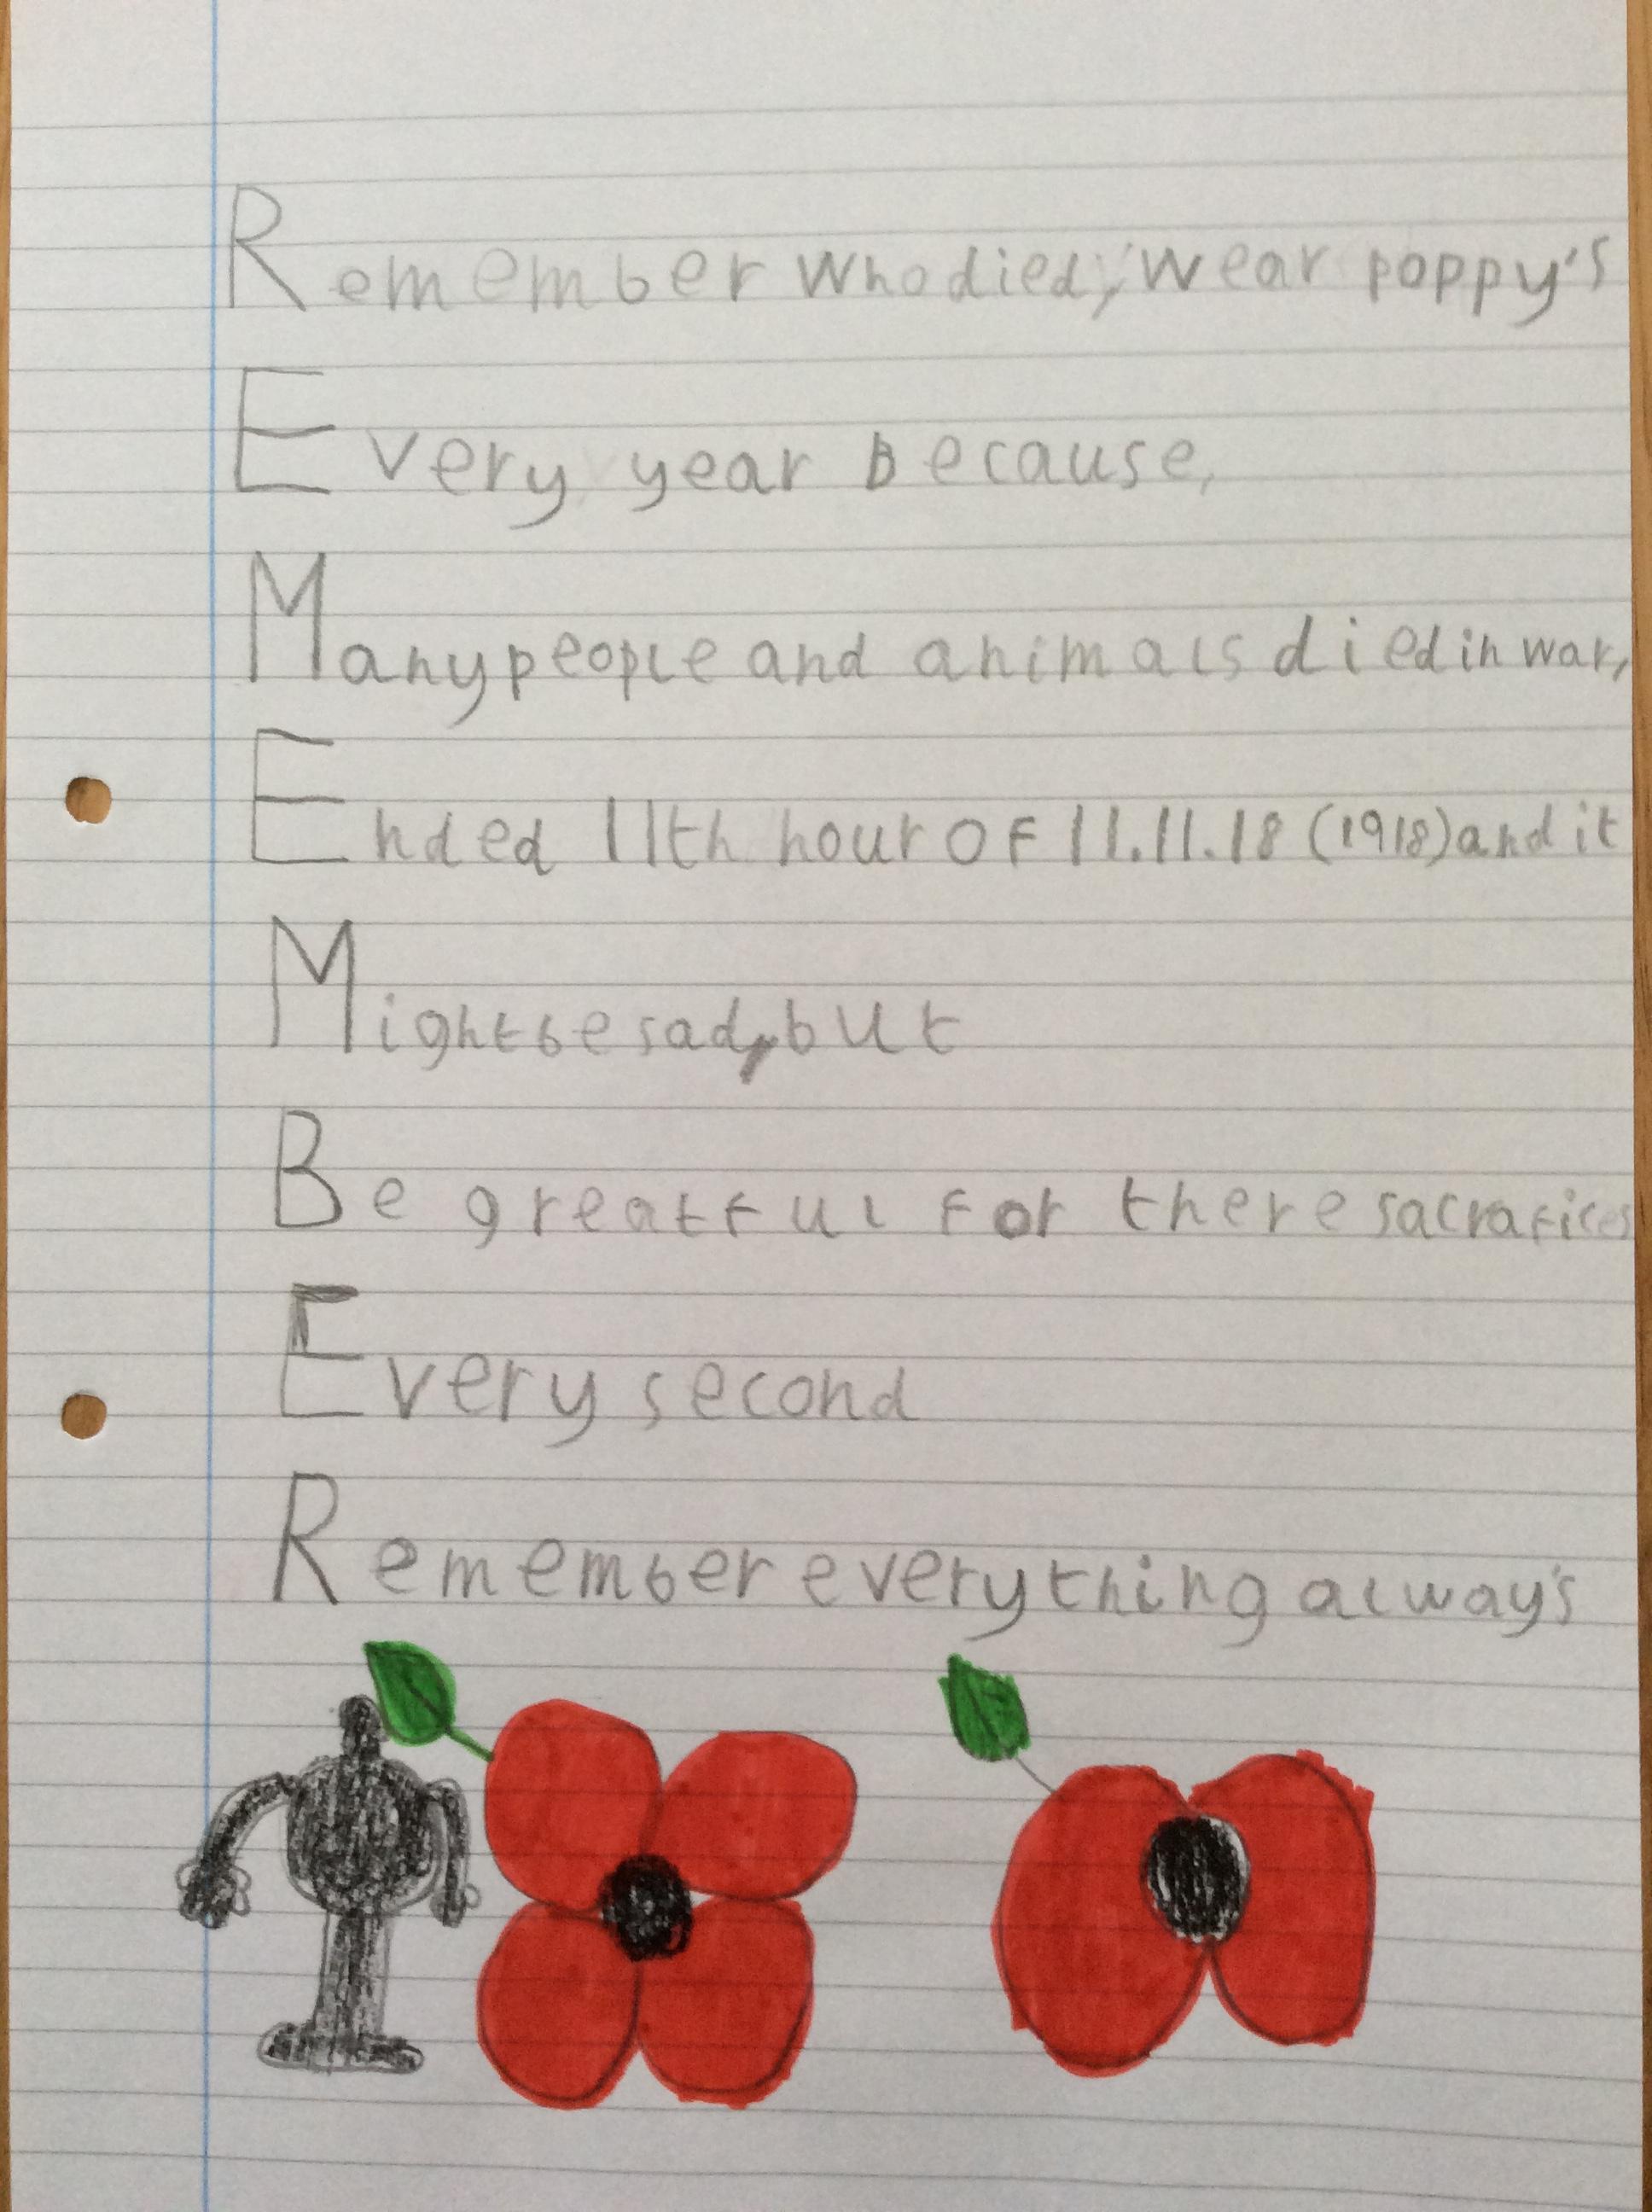 Remember who died, wear poppy's
Every year Because,
Many people and animals died in war,
Ended 11th hour OF 11.11.18 (1918) and it
Might be sad, but
Be greatful For there sacrafices
Every second
Remember everything alway's